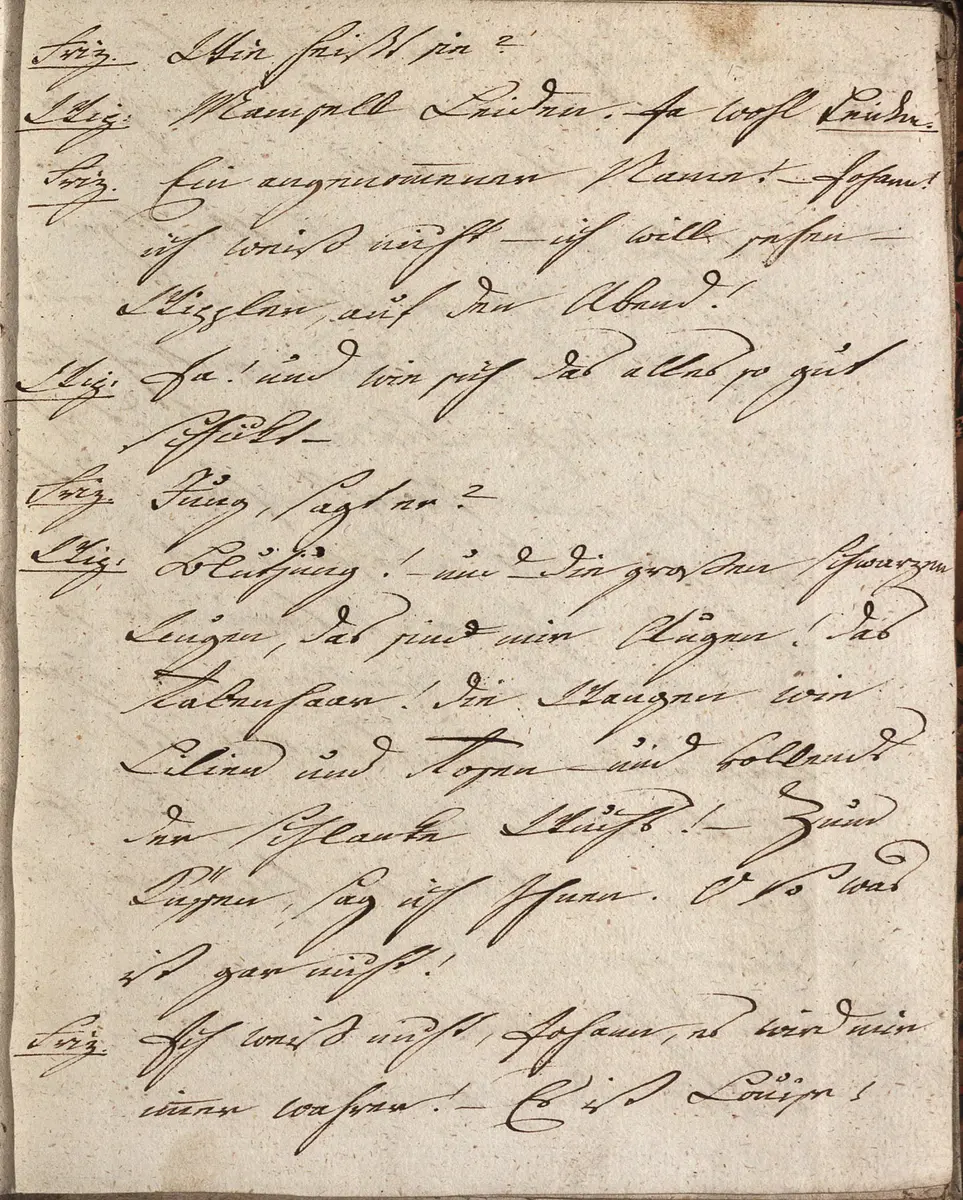 Friz. Wie heißt sie?
Wig. Mamsell Leiden. Ja wohl Leiden.
Friz. Ein angenom̅ener Name! – Johann!
ich weiß nicht – ich will sehen –
auf den Abend!
Wig. Ja! und wie sich das alles so gut
schikt –
Friz. Jung, sagt er?
Wig. Blutjung! – und – die großen schwarzen
Augen, das sind mir Augen! das
Rabenhaar! die Wangen wie
Lilien und Rosen – und vollends
der schlanke Wuchs! – Zum
Küssen, sag ich Ihnen. O so was
ist gar nicht!
Friz. Ich weiß nicht, Johann, es wird mir
im̅er wahrer! – Es ist Louise!